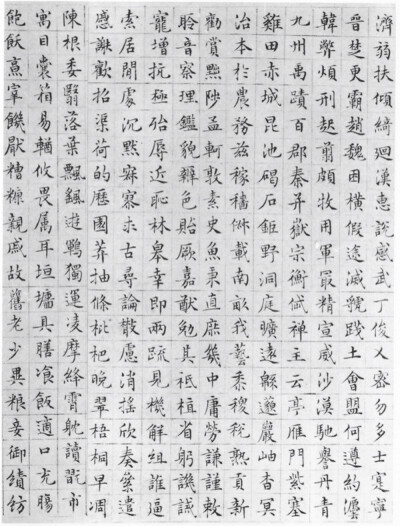 濟弱扶傾綺迴漢惠說感武丁俊乂密勿多士寔寧
晉楚更霸趙魏困橫假途滅虢踐土會盟何遵約灋
韓弊煩刑起翦頗牧用軍最精宣威沙漠馳譽丹青
九州禹蹟百郡秦并嶽宗衡岱禪主云亭雁門紫塞
雞田赤城昆池碣石鉅野洞庭曠遠緜邈巖岫杳冥
治本於農務茲稼穡俶載南畝我藝黍稷稅熟貢新
勸賞黜陟孟軻敦素史魚秉直庶幾中庸勞謙謹敕
聆音察理鑑貌辯色貽厥嘉猷勉其祗植省躬譏誡
寵增抗極殆辱近恥林皋幸即兩疏見機解組誰逼
索居閒處沉默寂寥求古尋論散慮消搖欣奏累遣
慼謝歡招渠荷的歷園莽抽條枇杷晚翠梧桐早凋
陳根委翳落葉飄颻遊鵾獨運凌摩絳霄耽讀翫市
寓目囊箱易輶攸畏屬耳垣墻具膳飡飯適口充腸
飽飫烹宰饑厭糟糠親戚故舊老少異糧妾御績紡